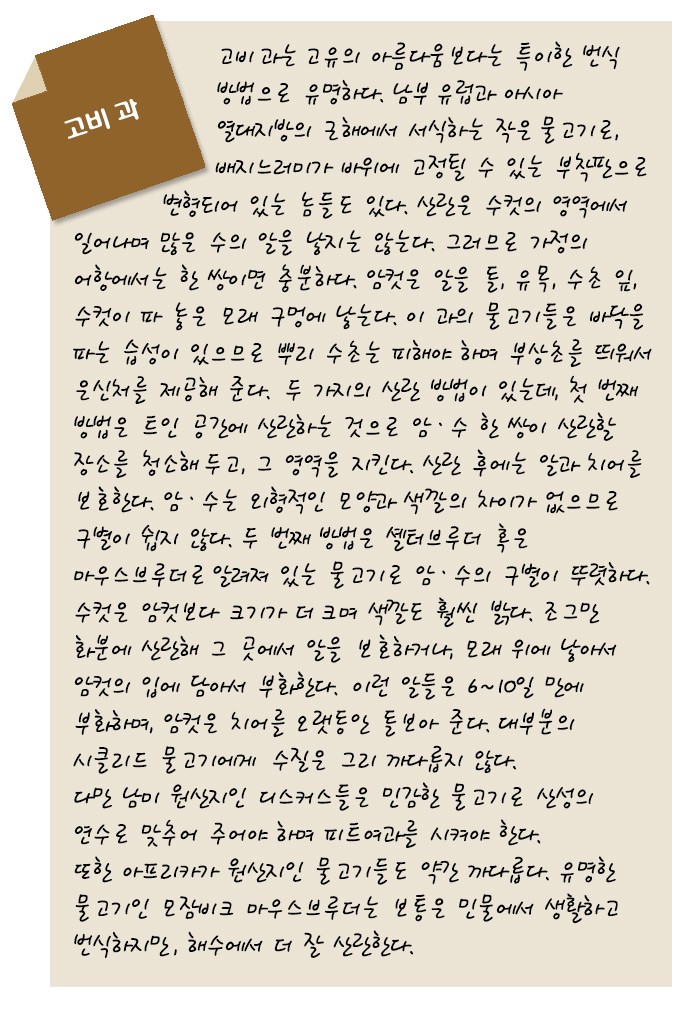 고비 과
고비 과는 고유의 아름다움보다는 특이한 번식
방법으로 유명하다. 남부 유럽과 아시아
열대지방의 근해에서 서식하는 작은 물고기로,
배지느러미가 바위에 고정될 수 있는 부착판으로
변형되어 있는 놈들도 있다. 산란은 수컷의 영역에서
일어나며 많은 수의 알을 낳지는 않는다. 그러므로 가정의
어항에서는 한 쌍이면 충분하다. 암컷은 알을 돌, 유목, 수초 잎,
수컷이 파 놓은 모래 구멍에 낳는다. 이 과의 물고기들은 바닥을
파는 습성이 있으므로 뿌리 수초는 피해야 하며 부상초를 띄워서
은신처를 제공해 준다. 두 가지의 산란 방법이 있는데, 첫 번째
방법은 트인 공간에 산란하는 것으로 암·수 한 쌍이 산란할
장소를 청소해 두고, 그 영역을 지킨다. 산란 후에는 알과 치어를
보호한다. 암·수는 외형적인 모양과 색깔의 차이가 없으므로
구별이 쉽지 않다. 두 번째 방법은 셸터브루더 혹은
마우스브루더로 알려져 있는 물고기로 암·수의 구별이 뚜렷하다.
수컷은 암컷보다 크기가 더 크며 색깔도 훨씬 밝다. 조그만
화분에 산란해 그 곳에서 알을 보호하거나, 모래 위에 낳아서
암컷의 입에 담아서 부화한다. 이런 알들은 6~10일 만에
부화하며, 암컷은 치어를 오랫동안 돌보아 준다. 대부분의
시클리드 물고기에게 수질은 그리 까다롭지 않다.
다만 남미 원산지인 디스커스들은 민감한 물고기로 산성의
연수로 맞추어 주어야 하며 피트여과를 시켜야 한다.
또한 아프리카가 원산지인 물고기들도 약간 까다롭다. 유명한
물고기인 모잠비크 마우스브루더는 보통은 민물에서 생활하고
번식하지만, 해수에서 더 잘 산란한다.